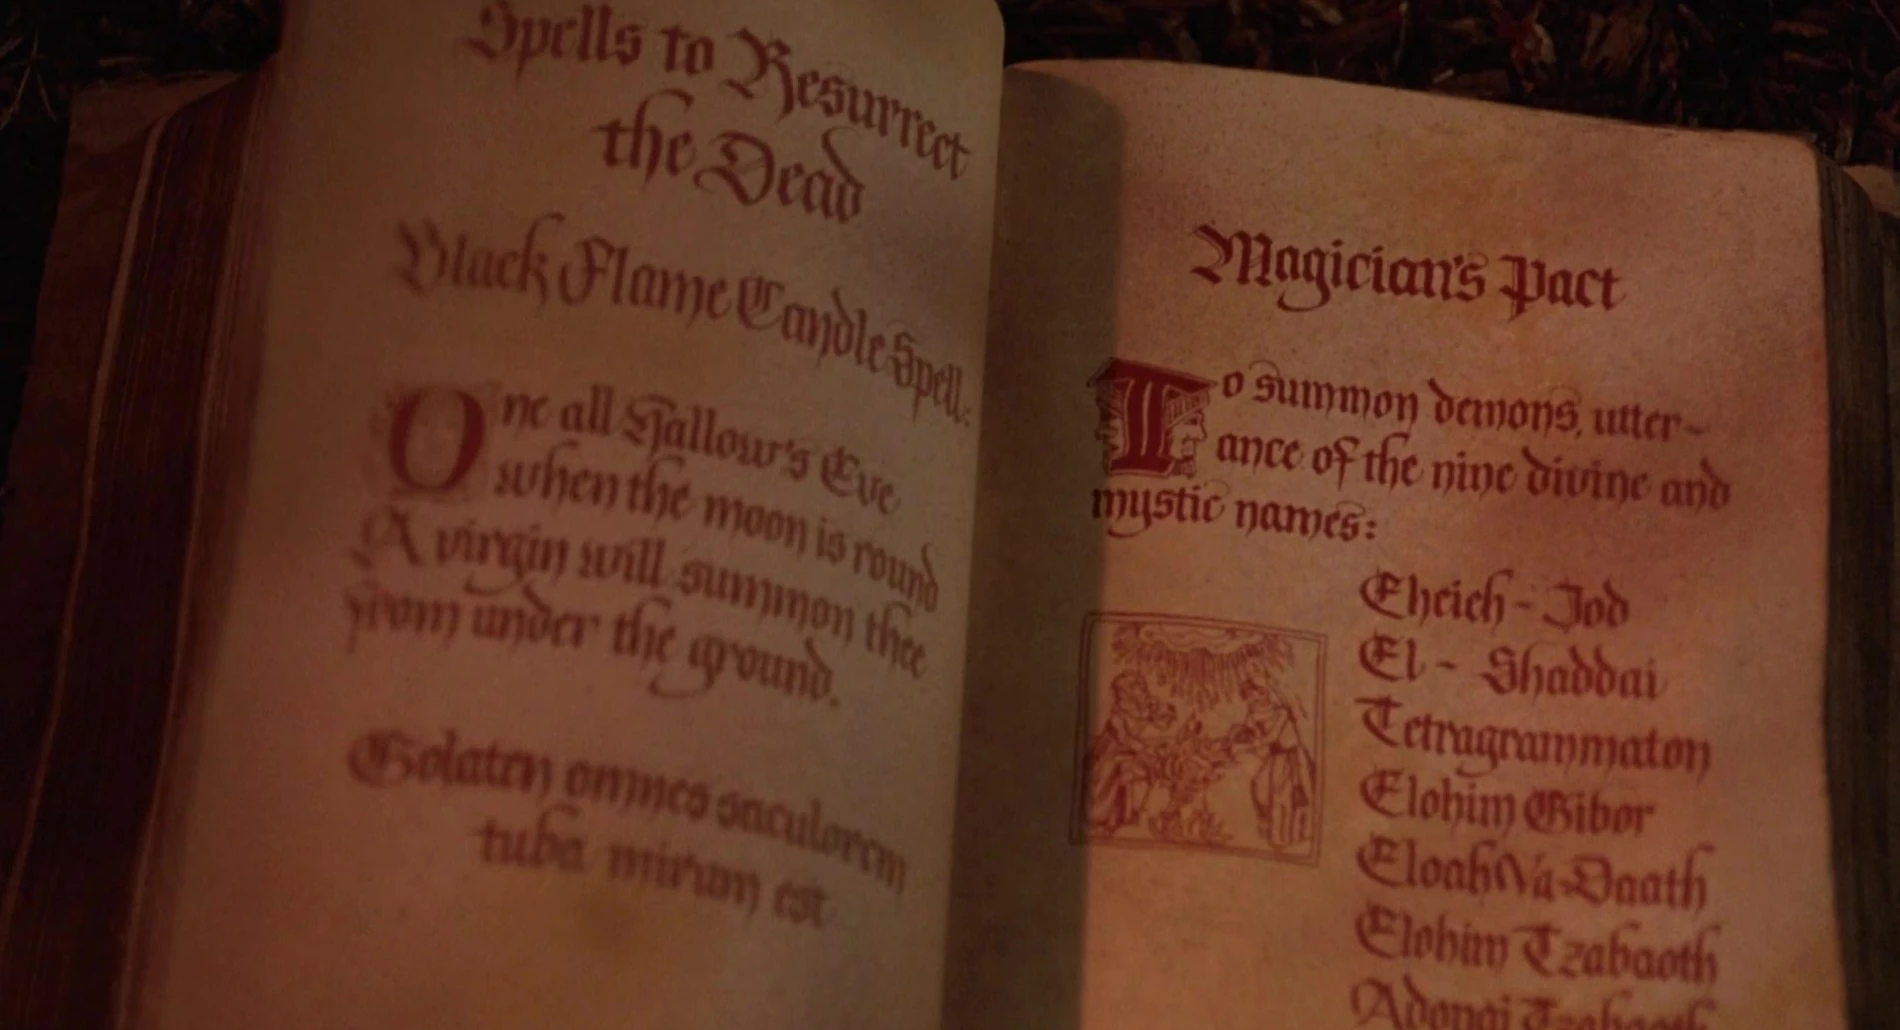 Spells to Resurrect
the Dead
Black Flame Candle Spell:
One all Hallow's Eve
when the moon is round
A virgin will summon thee
from under the ground.
Golaten omnes saculorem
tuba mirum est
Magician's Pact
To summon demons, utter-
ance of the nine divine and
mystic names:
Eheieh - Jod
El - Shaddai
Tetragrammaton
Elohim Gibor
Eloah Va-Daath
Elohim Tzabaoth
Adonai Tzabaoth